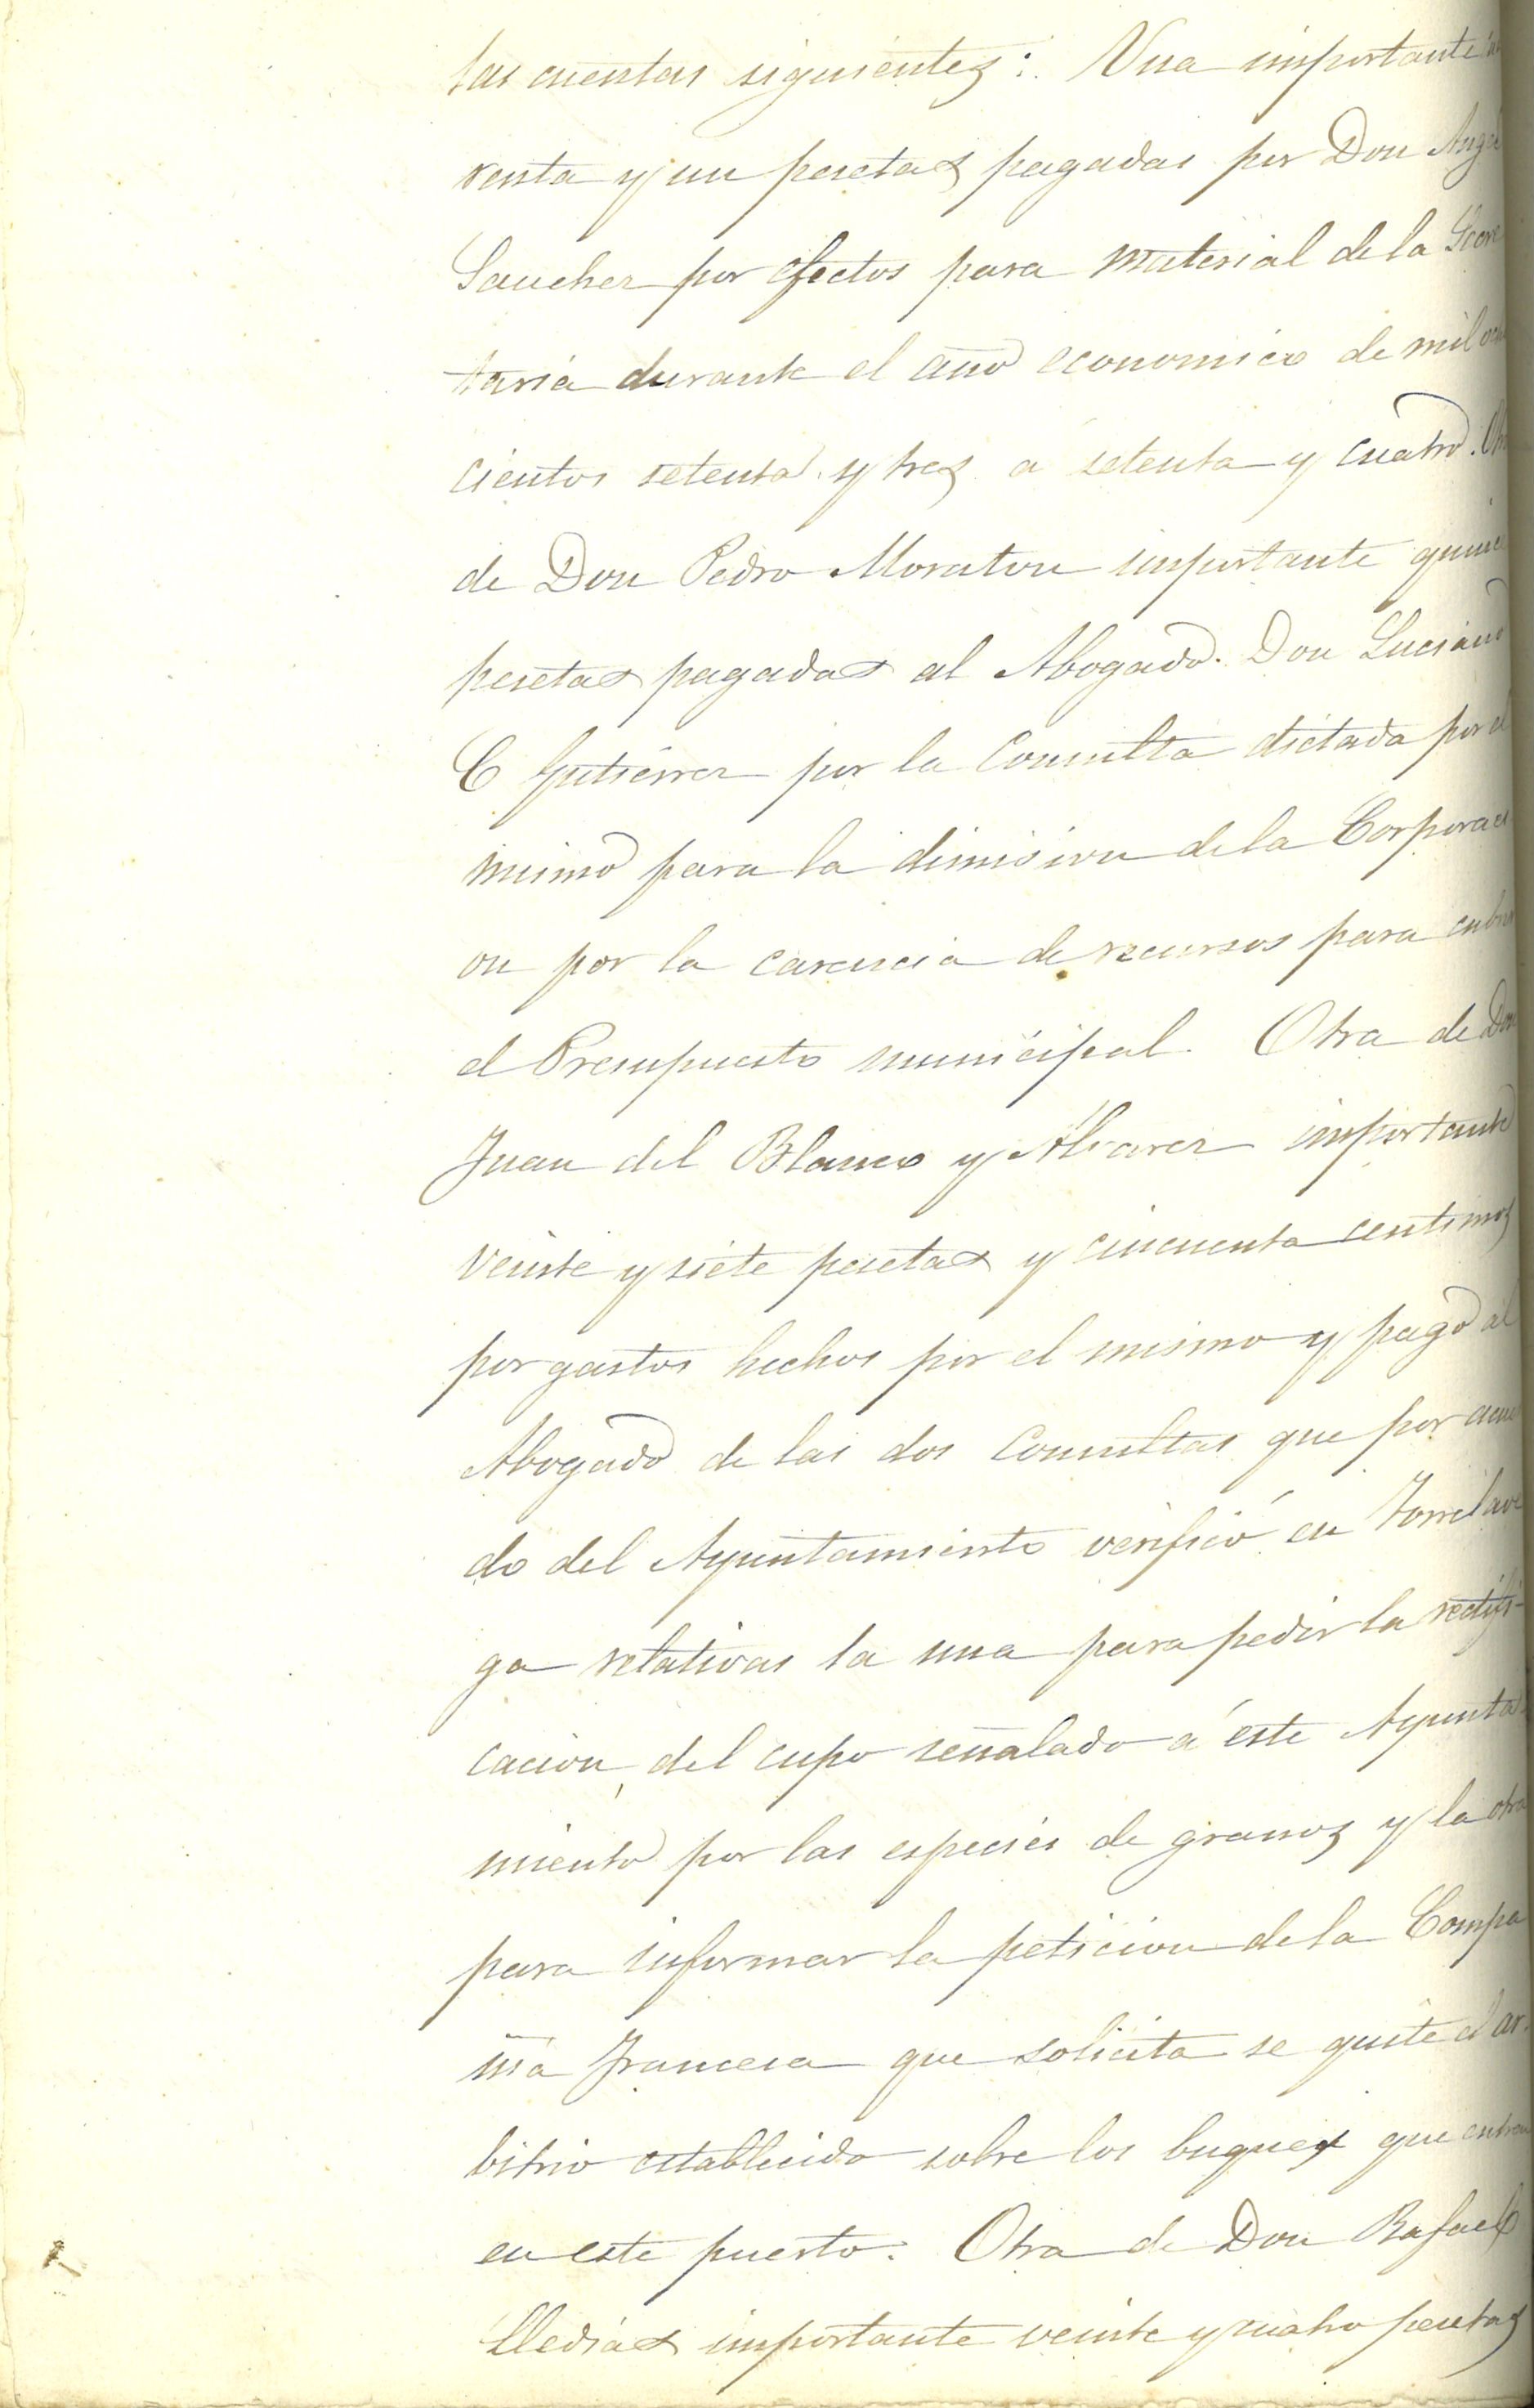 las cuentas siguientes: Una importante
renta y un pesetas pagadas por Don Angel
Sanchez por efectos para material de la Secre
taria durante el año economico de mil ocho
cientos setenta y tres a setenta y cuatro. Otra
de Don Pedro Moraton importante quince
pesetas pagadas al Abogado Don Luciano
C Gutierrez por la Consulta dictada por el
mismo para la dimision de la Corporaci
on por la carencia de recursos para cubrir
el Presupuesto municipal. Otra de Don
Juan del Blanco y Alvarez importante
veinte y siete pesetas y cincuenta centimos
por gastos hechos por el mismo y pago al
Abogado de las dos Consultas que por acuer
do del Ayuntamiento verificó en Torrelave
ga relativas la una para pedir la rectifi-
cacion del cupo señalado á este Ayunta
miento por las especies de granos y la otra
para informar la peticion de la Compa
ñia Francesa que solicita se quite el ar-
bitrio establecido sobre los buques que entran
en este puerto. Otra de Don Rafael
Lledias importante veinte y cuatro pesetas